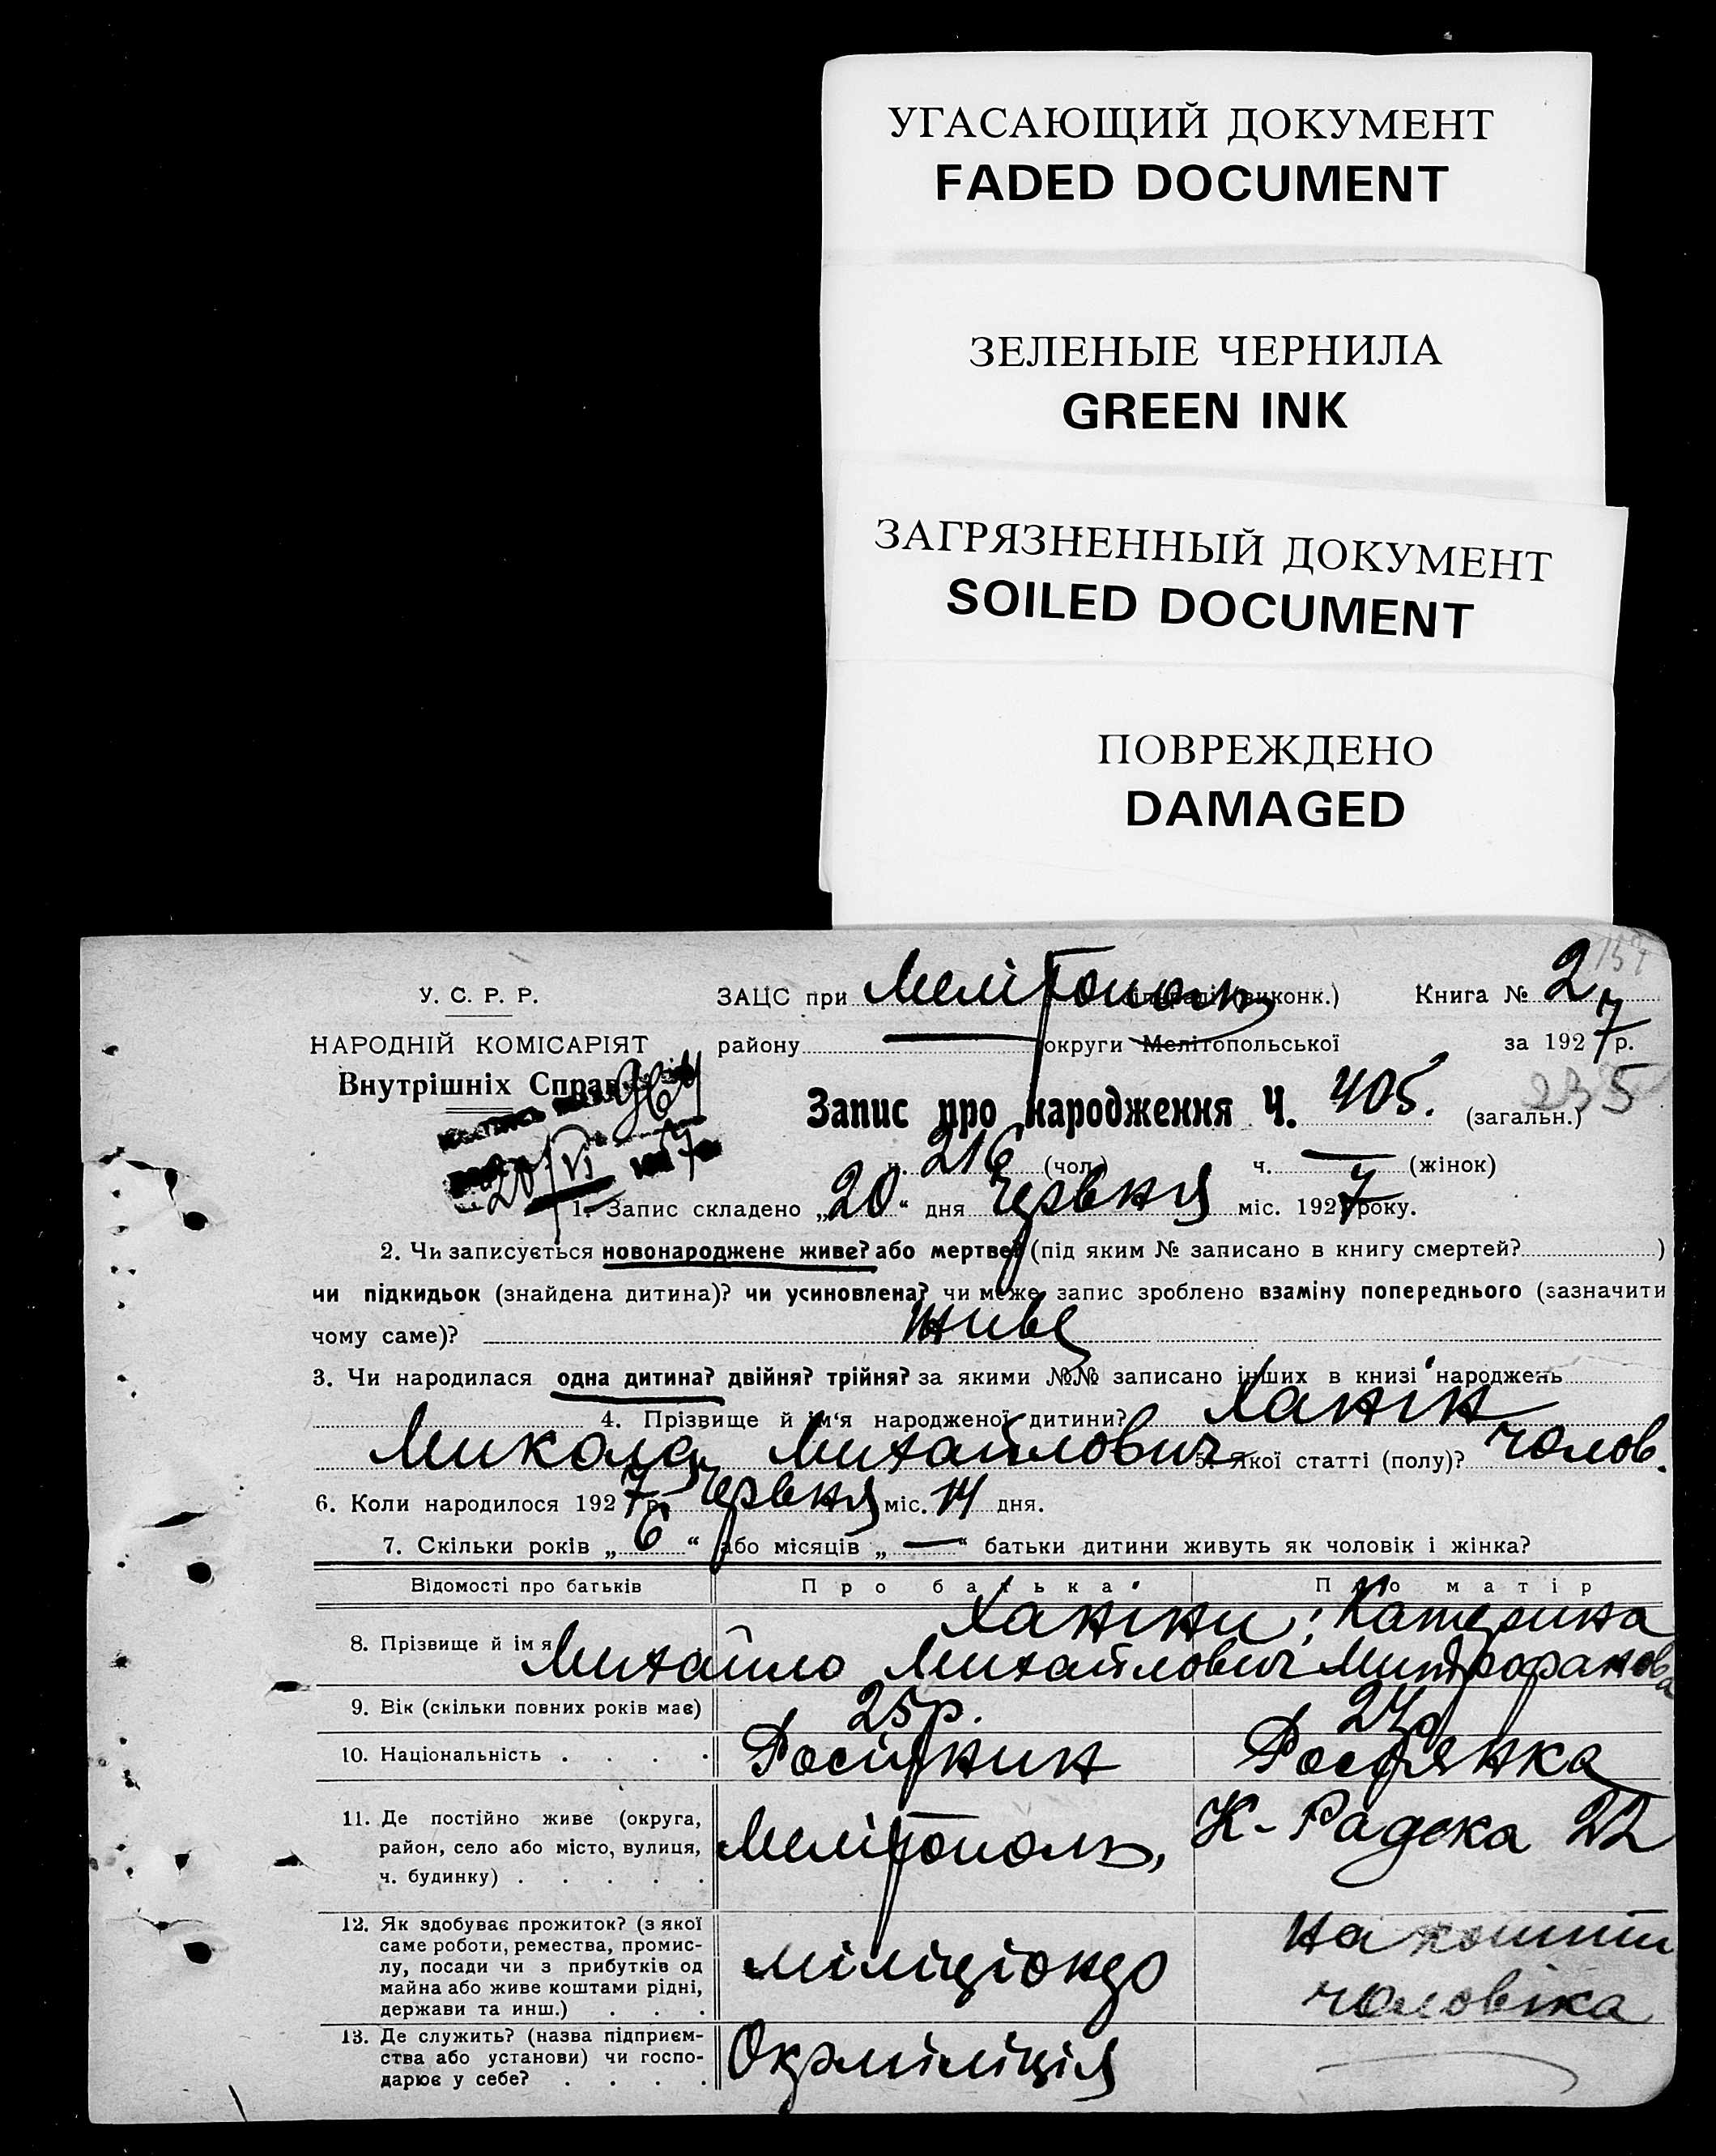 УГАСАЮЩИЙ ДОКУМЕНТ
FADED DOCUMENT
ЗЕЛЕНЫЕ ЧЕРНИЛА
GREEN INK
ЗАГРЯЗНЕННЫЙ ДОКУМЕНТ
SOILED DOCUMENT
ПОВРЕЖДЕНО
DAMAGED
У. С. Р. Р. ЗАЦС при Мелітополь виконк.) Книга № 2
НАРОДНІЙ КОМІСАРІЯТ району — округи Мелітопольської за 1927 р.
Внутрішніх Справ
Запис про народження Ч. 405. (загальн.)
216 (чол.) ч. — (жінок)
20/VI
1. Запис складено „20“ дня Червня міс. 1927 року.
2. Чи записується новонароджене живе? або мертве? (під яким № записано в книгу смертей? )
чи підкидьок (знайдена дитина)? чи усиновлена? чи може запис зроблено взаміну попереднього (зазначити
чому саме)? живе
3. Чи народилася одна дитина? двійня? трійня? за якими №№ записано інших в книзі народжень
4. Прізвище й ім‘я народженої дитини? Ханін
Микола Михайлович 5. Якої статті (полу)? чолов.
6. Коли народилося 1927 р. Червня міс. 14 дня.
7. Скільки років „6“ або місяців „—“ батьки дитини живуть як чоловік і жінка?
Відомості про батьків Про батька Про матір
Ханіни: Катерина
8. Прізвище й ім я Михайло Михайлович Митрофановна
9. Вік (скільки повних років має) 25р. 24р
10. Національність . . . . Росіянин Росіянка
11. Де постійно живе (округа,
район, село або місто, вулиця,
ч. будинку) . . . . . Мелітополь, К-Радека 22
12. Як здобуває прожиток? (з якої
саме роботи, ремества, промис-
лу, посади чи з прибутків од
майна або живе коштами рідні,
держави та инш.) . . . міліціонер на кошти
чоловіка
13. Де служить? (назва підприєм-
ства або установи) чи госпо-
дарює у себе? . . . . Окрміліція